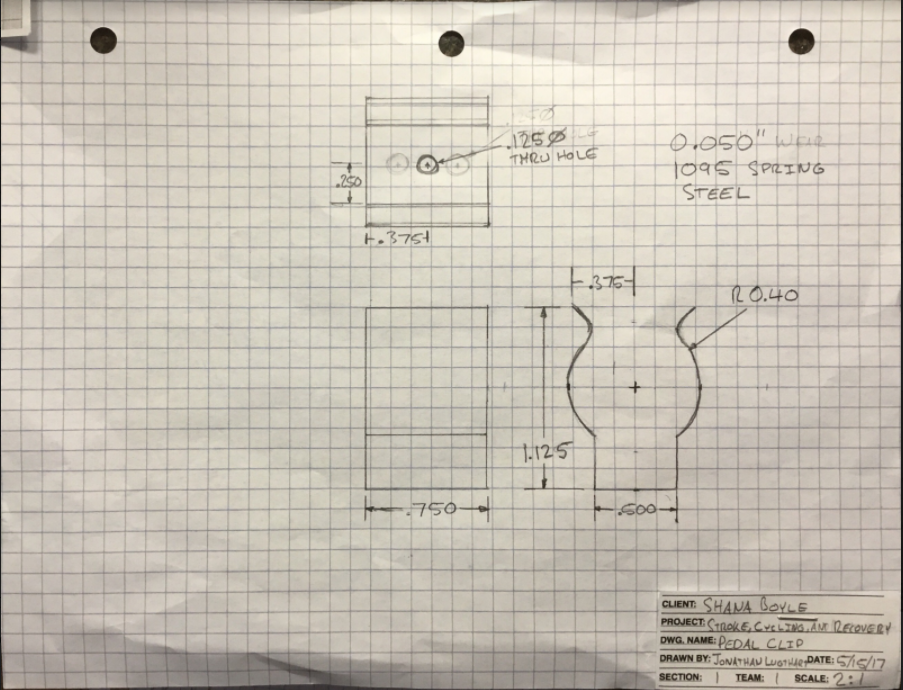 .125Ø
THRU HOLE
0.050"
1095 SPRING
STEEL
.250
.375
.375
R 0.40
1.125
.750
.500
CLIENT: SHANA BOYLE
PROJECT: STROKE, CYCLING, AND RECOVERY
DWG. NAME: PEDAL CLIP
DRAWN BY: JONATHAN DATE: 5/15/17
SECTION: 1 TEAM: 1 SCALE: 2:1